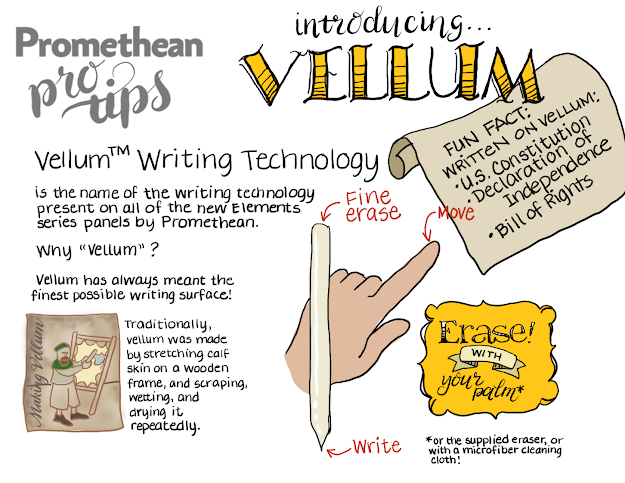 Promethean
pro
tips
introducing...
VELLUM
FUN FACT:
WRITTEN ON VELLUM:
• U.S. Constitution
• Declaration of
Independence
• Bill of Rights
Vellum™ Writing Technology
is the name of the writing technology
present on all of the new Elements
series panels by Promethean.
Why "Vellum"?
Vellum has always meant the
finest possible writing surface!
Making Vellum
Traditionally,
vellum was made
by stretching calf
skin on a wooden
frame, and scraping,
wetting, and
drying it
repeatedly.
Fine
erase
Move
Write
Erase!
WITH
your
palm*
*or the supplied eraser, or
with a microfiber cleaning
cloth!